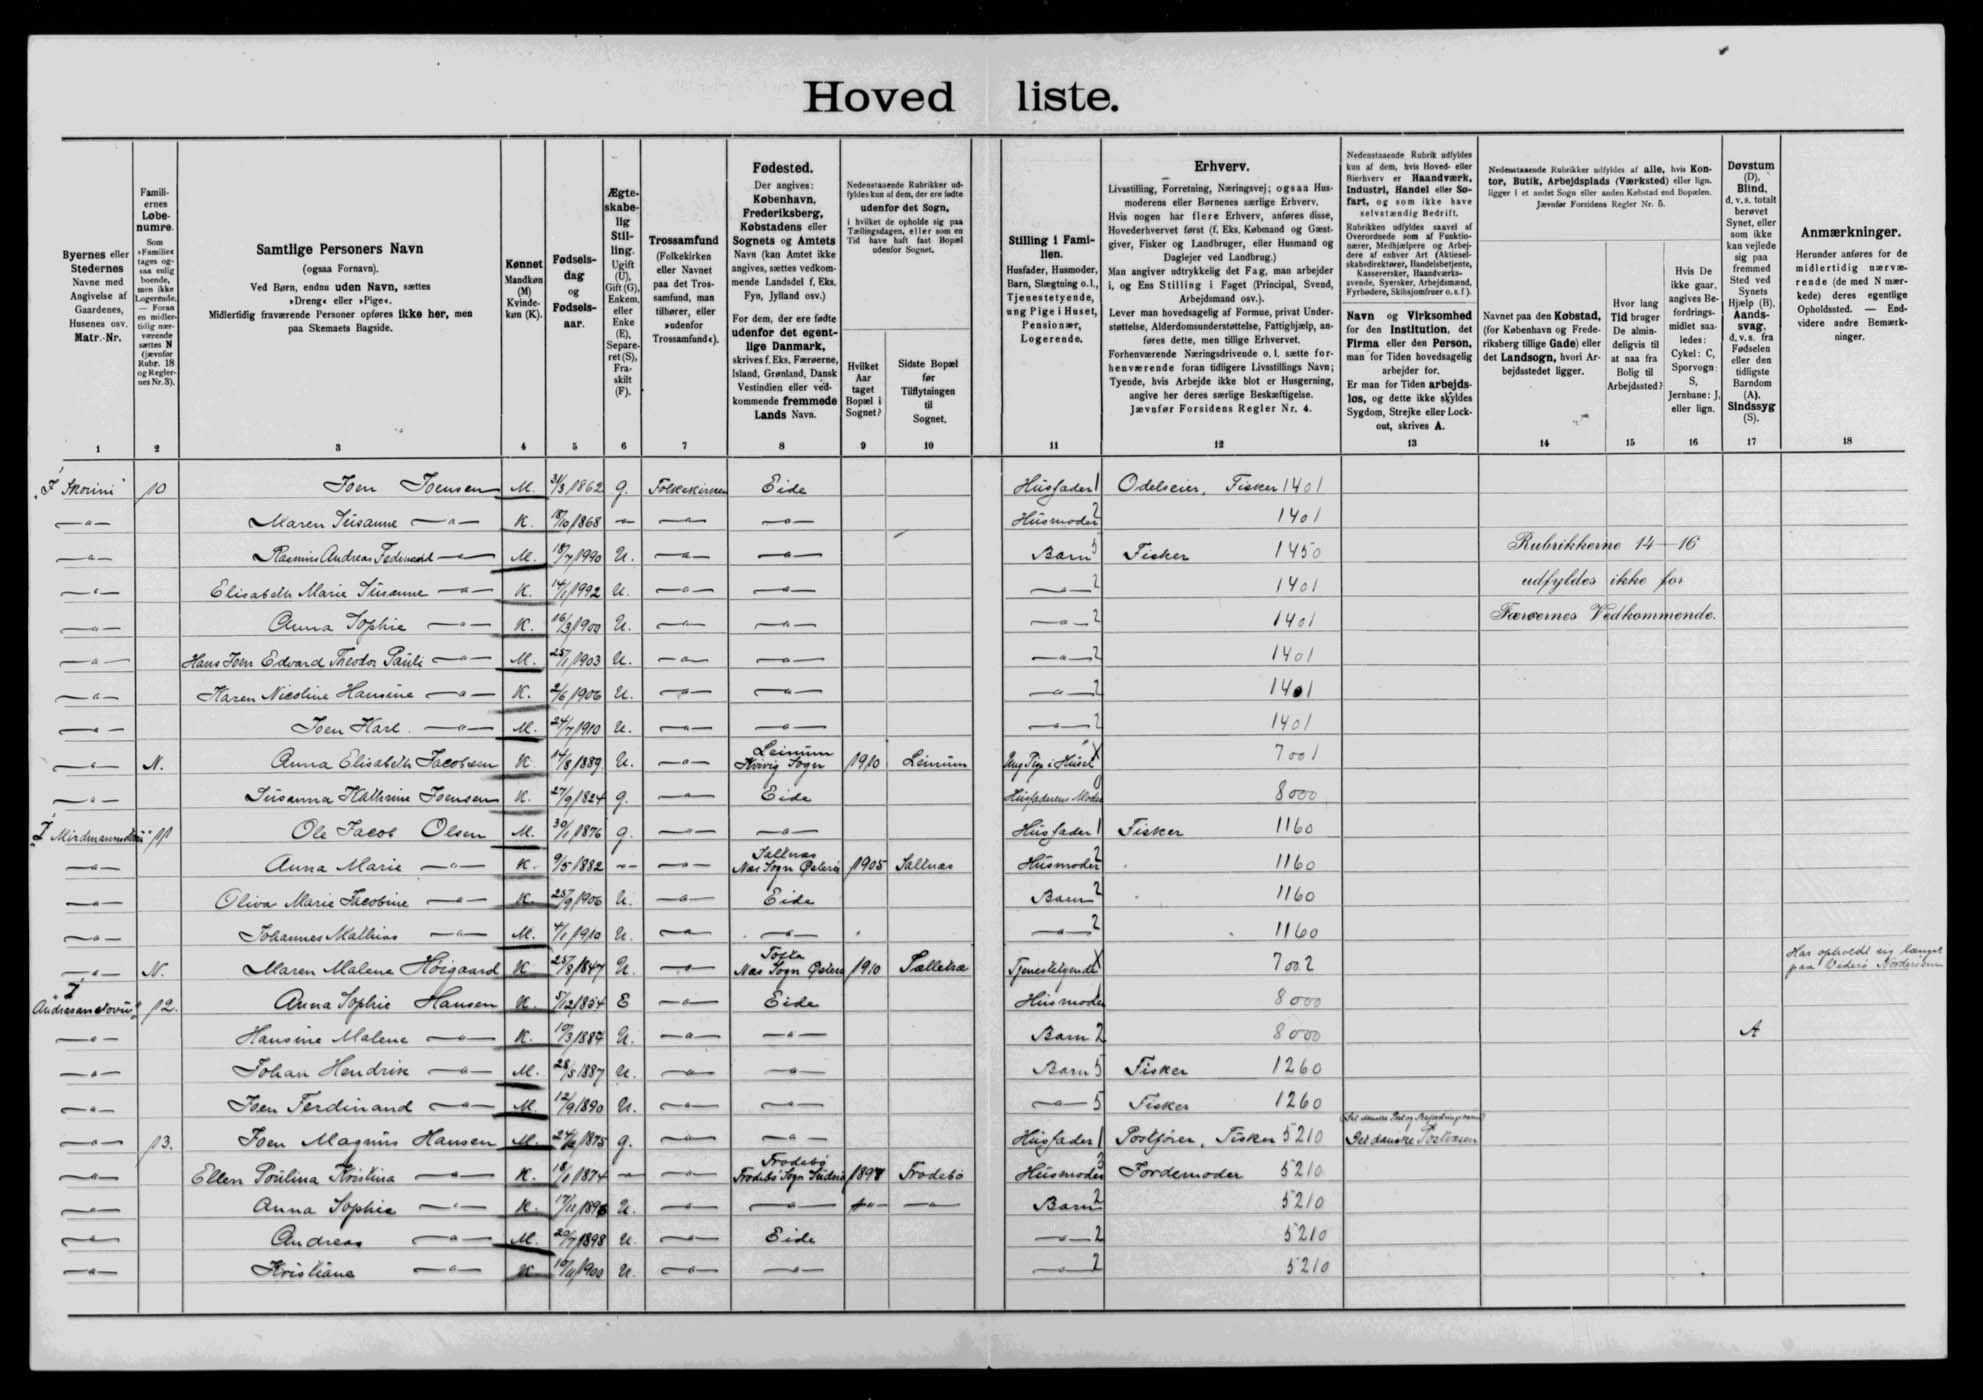 Hoved liste.
Byernes eller Stedernes Navne med Angivelse af Gaardenes, Husenes osv. Matr.-Nr.
Familiernes Løbenumre. Som »Familie« tages ogsaa enlig boende, men ikke Logerende. — Foran en midlertidig nærværende sættes N (jævnfør Rubr. 18 og Regler-nes Nr. 3).
Samtlige Personers Navn
(ogsaa Fornavn).
Ved Børn, endnu uden Navn, sættes
»Dreng« eller »Pige«.
Midlertidig fraværende Personer opføres ikke her, men
paa Skemaets Bagside.
Kønnet Mandkøn (M) Kvindekøn (K).
Fødselsdag og Fødselsaar.
Ægteskabelig Stilling. Ugift (U), Gift (G), Enkem. eller Enke (E), Separeret (S), Fraskilt (F).
Trossamfund (Folkekirken eller Navnet paa det Trossamfund, man tilhører, eller »udenfor Trossamfund«).
Fødested.
Der angives: København, Frederiksberg, Købstadens eller Sognets og Amtets Navn (kan Amtet ikke angives, sættes vedkommende Landsdel f. Eks. Fyn, Jylland osv.)
For dem, der ere fødte udenfor det egentlige Danmark, skrives f. Eks. Færøerne, Island, Grønland, Dansk Vestindien eller vedkommende fremmede Lands Navn.
Nedenstaaende Rubrikker udfyldes kun af dem, der ere fødte udenfor det Sogn, i hvilket de opholde sig paa Tællingsdagen, eller som en Tid have haft fast Bopæl udenfor Sognet.
Hvilket Aar taget Bopæl i Sognet?
Sidste Bopæl før Tilflytningen til Sognet.
Stilling i Familien.
Husfader, Husmoder, Barn, Slægtning o. l., Tjenestetyende, ung Pige i Huset, Pensionær, Logerende.
Erhverv.
Livsstilling, Forretning, Næringsvej; ogsaa Husmoderens eller Børnenes særlige Erhverv.
Hvis nogen har flere Erhverv, anføres disse, Hovederhvervet først (f. Eks. Købmand og Gæstgiver, Fisker og Landbruger, eller Husmand og Daglejer ved Landbrug.)
Man angiver udtrykkelig det Fag, man arbejder i, og Ens Stilling i Faget (Principal, Svend, Arbejdsmand osv.).
Lever man hovedsagelig af Formue, privat Understøttelse, Alderdomsunderstøttelse, Fattighjælp, anføres dette, men tillige Erhvervet.
Forhenværende Næringsdrivende o. l. sætte forhenværende foran tidligere Livsstillings Navn; Tyende, hvis Arbejde ikke blot er Husgerning, angive her deres særlige Beskæftigelse.
Jævnfør Forsidens Regler Nr. 4.
Nedenstaaende Rubrik udfyldes kun af dem, hvis Hoved- eller Bierhverv er Haandværk, Industri, Handel eller Søfart, og som ikke have selvstændig Bedrift.
Rubrikken udfyldes saavel af Overordnede som af Funktionærer, Medhjælpere og Arbejdere af enhver Art (Aktieselskabsdirektører, Handelsbetjente, Kasserersker, Haandværkssvende, Syersker, Arbejdsmænd, Fyrbødere, Skibsjomfruer o. s. f.).
Navn og Virksomhed for den Institution, det Firma eller den Person, man for Tiden hovedsagelig arbejder for.
Er man for Tiden arbejdsløs, og dette ikke skyldes Sygdom, Strejke eller Lockout, skrives A.
Nedenstaaende Rubrikker udfyldes af alle, hvis Kontor, Butik, Arbejdsplads (Værksted) eller lign. ligger i et andet Sogn eller anden Købstad end Bopælen. Jævnfør Forsidens Regler Nr. 5.
Navnet paa den Købstad, (for København og Frederiksberg tillige Gade) eller det Landsogn, hvori Arbejdsstedet ligger.
Hvor lang Tid bruger De almindeligvis til at naa fra Bolig til Arbejdssted?
Hvis De ikke gaar, angives Befordringsmidlet saaledes: Cykel: C, Sporvogn: S, Jernbane: J, eller lign.
Døvstum (D), Blind, d. v. s. totalt berøvet Synet, eller som ikke kan vejlede sig paa fremmed Sted ved Synets Hjælp (B). Aandssvag, d. v. s. fra Fødselen eller den tidligste Barndom (A). Sindssyg (S).
Anmærkninger.
Herunder anføres for de midlertidig nærværende (de med N mærkede) deres egentlige Opholdssted. — Endvidere andre Bemærkninger.
1 2 3 4 5 6 7 8 9 10 11 12 13 14 15 16 17 18
"I Skorini" 10 Joen Joensen M. 31/3 1862 g. Folkekirken Eide Husfader 1 Odelseier, Fisker 1401
—"— Maren Susanne —"— K. 18/10 1868 —"— —"— —"— Husmoder 2 1401
—"— Rasmus Andreas Ferdinand —"— M. 18/7 1990 U. —"— —"— Barn 5 Fisker 1450 Rubrikkerne 14—16
—"— Elisabeth Marie Susanne —"— K. 14/1 1992 U. —"— —"— —"— 2 1401 udfyldes ikke for
—"— Anna Sophie —"— K. 16/3 1900 U. —"— —"— —"— 2 1401 Færøernes Vedkommende.
—"— Hans Joen Edvard Theodor Pauli —"— M. 25/1 1903 U. —"— —"— —"— 2 1401
—"— Karen Nicoline Hansine —"— K. 2/6 1906 U. —"— —"— —"— 2 1401
—"— Joen Karl —"— M. 24/7 1910 U. —"— —"— —"— 2 1401
—"— N. Anna Elisabeth Jacobsen K. 14/8 1889 U. —"— Leinum Kvivig Sogn 1910 Leinum Ung Pige i Huset X 7001
—"— Susanna Kathrine Joensen K. 27/9 1824 g. —"— Eide Husfaderens Moder 0 8000
11 Ole Jacob Olsen M. 30/1 1876 g. —"— —"— Husfader 1 Fisker 1160
—"— Anna Marie —"— K. 9/5 1882 —"— —"— Saltnas Nas Sogn Østerø 1905 Saltnas Husmoder 2 1160
—"— Oliva Marie Jacobine —"— K. 25/9 1906 U. —"— Eide Barn 2 1160
—"— Johannes Mathias —"— M. 4/1 1910 U. —"— —"— —"— 2 1160
—"— N. Maren Malena Höigaard K 25/8 1847 U. —"— Tofte Nas Sogn Østerø 1910 Tjenestetyende X 7002 Har opholdt sig længst paa Viderø Norderøerne
12. Anna Sophie Hansen K. 3/12 1854 E —"— Eide Husmoder 1 8000
—"— Hansine Malena —"— K. 10/3 1884 U. —"— —"— Barn 2 8000 A
—"— Johan Hendrik —"— M. 28/5 1887 U. —"— —"— Barn 5 Fisker 1260
—"— Joen Ferdinand —"— M. 12/9 1890 U. —"— —"— —"— 5 Fisker 1260
—"— 13. Joen Magnus Hansen M. 1875 g. —"— —"— Husfader 1 Postfører, Fisker 5210 Det danske Postvæsen
—"— Ellen Poulina Kristina —"— K. 18/1 1874 —"— —"— Frodebø Frodebø Sogn Suderø 1897 Frodebø Husmoder 3 Jordemoder 5210
—"— Anna Sophie —"— K. 17/11 1896 U. —"— —"— —"— —"— Barn 2 5210
—"— Andreas —"— M. 20/7 1898 U. —"— Eide —"— 2 5210
—"— Kristiane —"— K 1900 U. —"— —"— —"— 2 5210